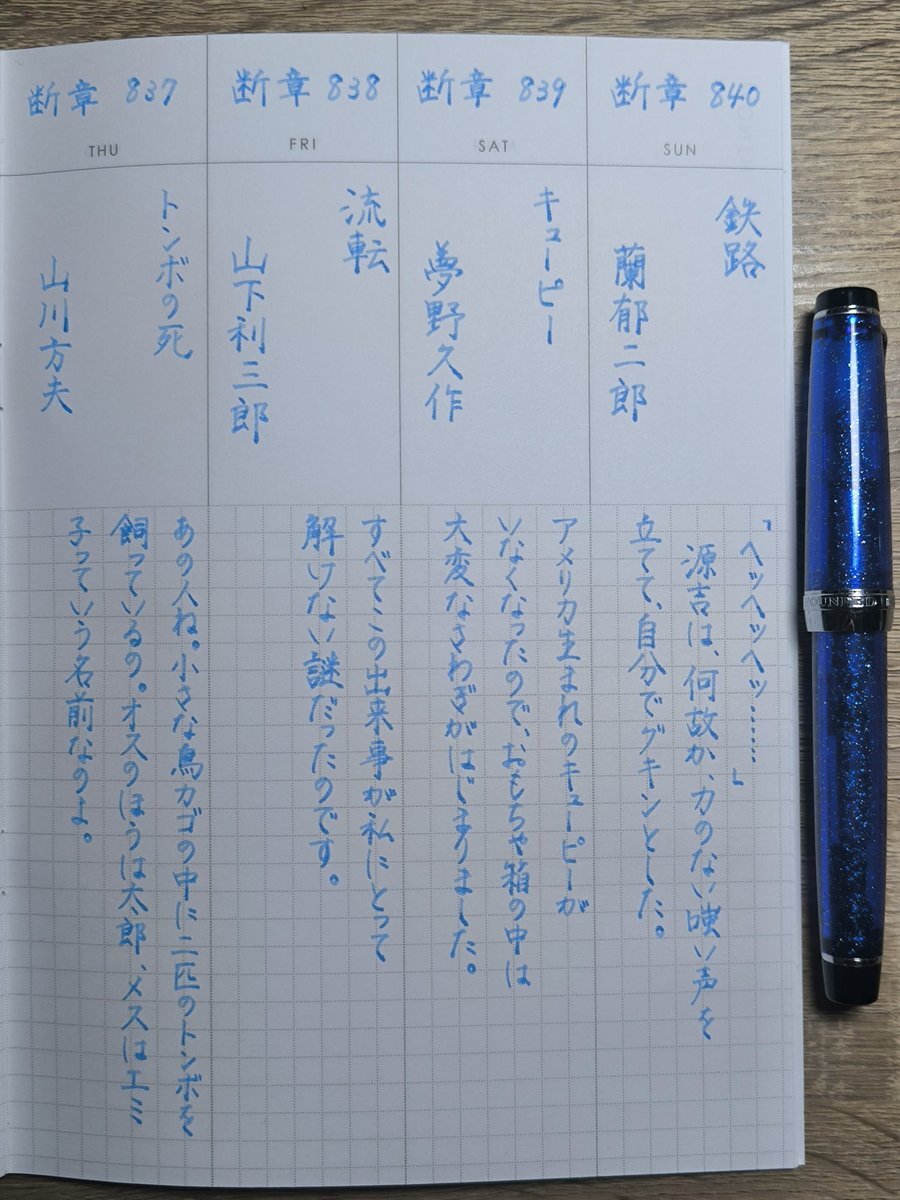 断章 837
THU
トンボの死
山川方夫
あの人ね。小さな鳥カゴの中に二匹のトンボを
飼っているの。オスのほうは太郎、メスはエミ
子っていう名前なのよ。
断章 838
FRI
流転
山下利三郎
すべてこの出来事が私にとって
解けない謎だったのです。
断章 839
SAT
キューピー
夢野久作
アメリカ生まれのキューピーが
いなくなったので、おもちゃ箱の中は
大変なさわぎがはじまりました。
断章 840
SUN
鉄路
蘭郁二郎
「ヘッヘッヘッ……」
源吉は、何故か、力のない嗤い声を
立てて、自分でグキンとした。